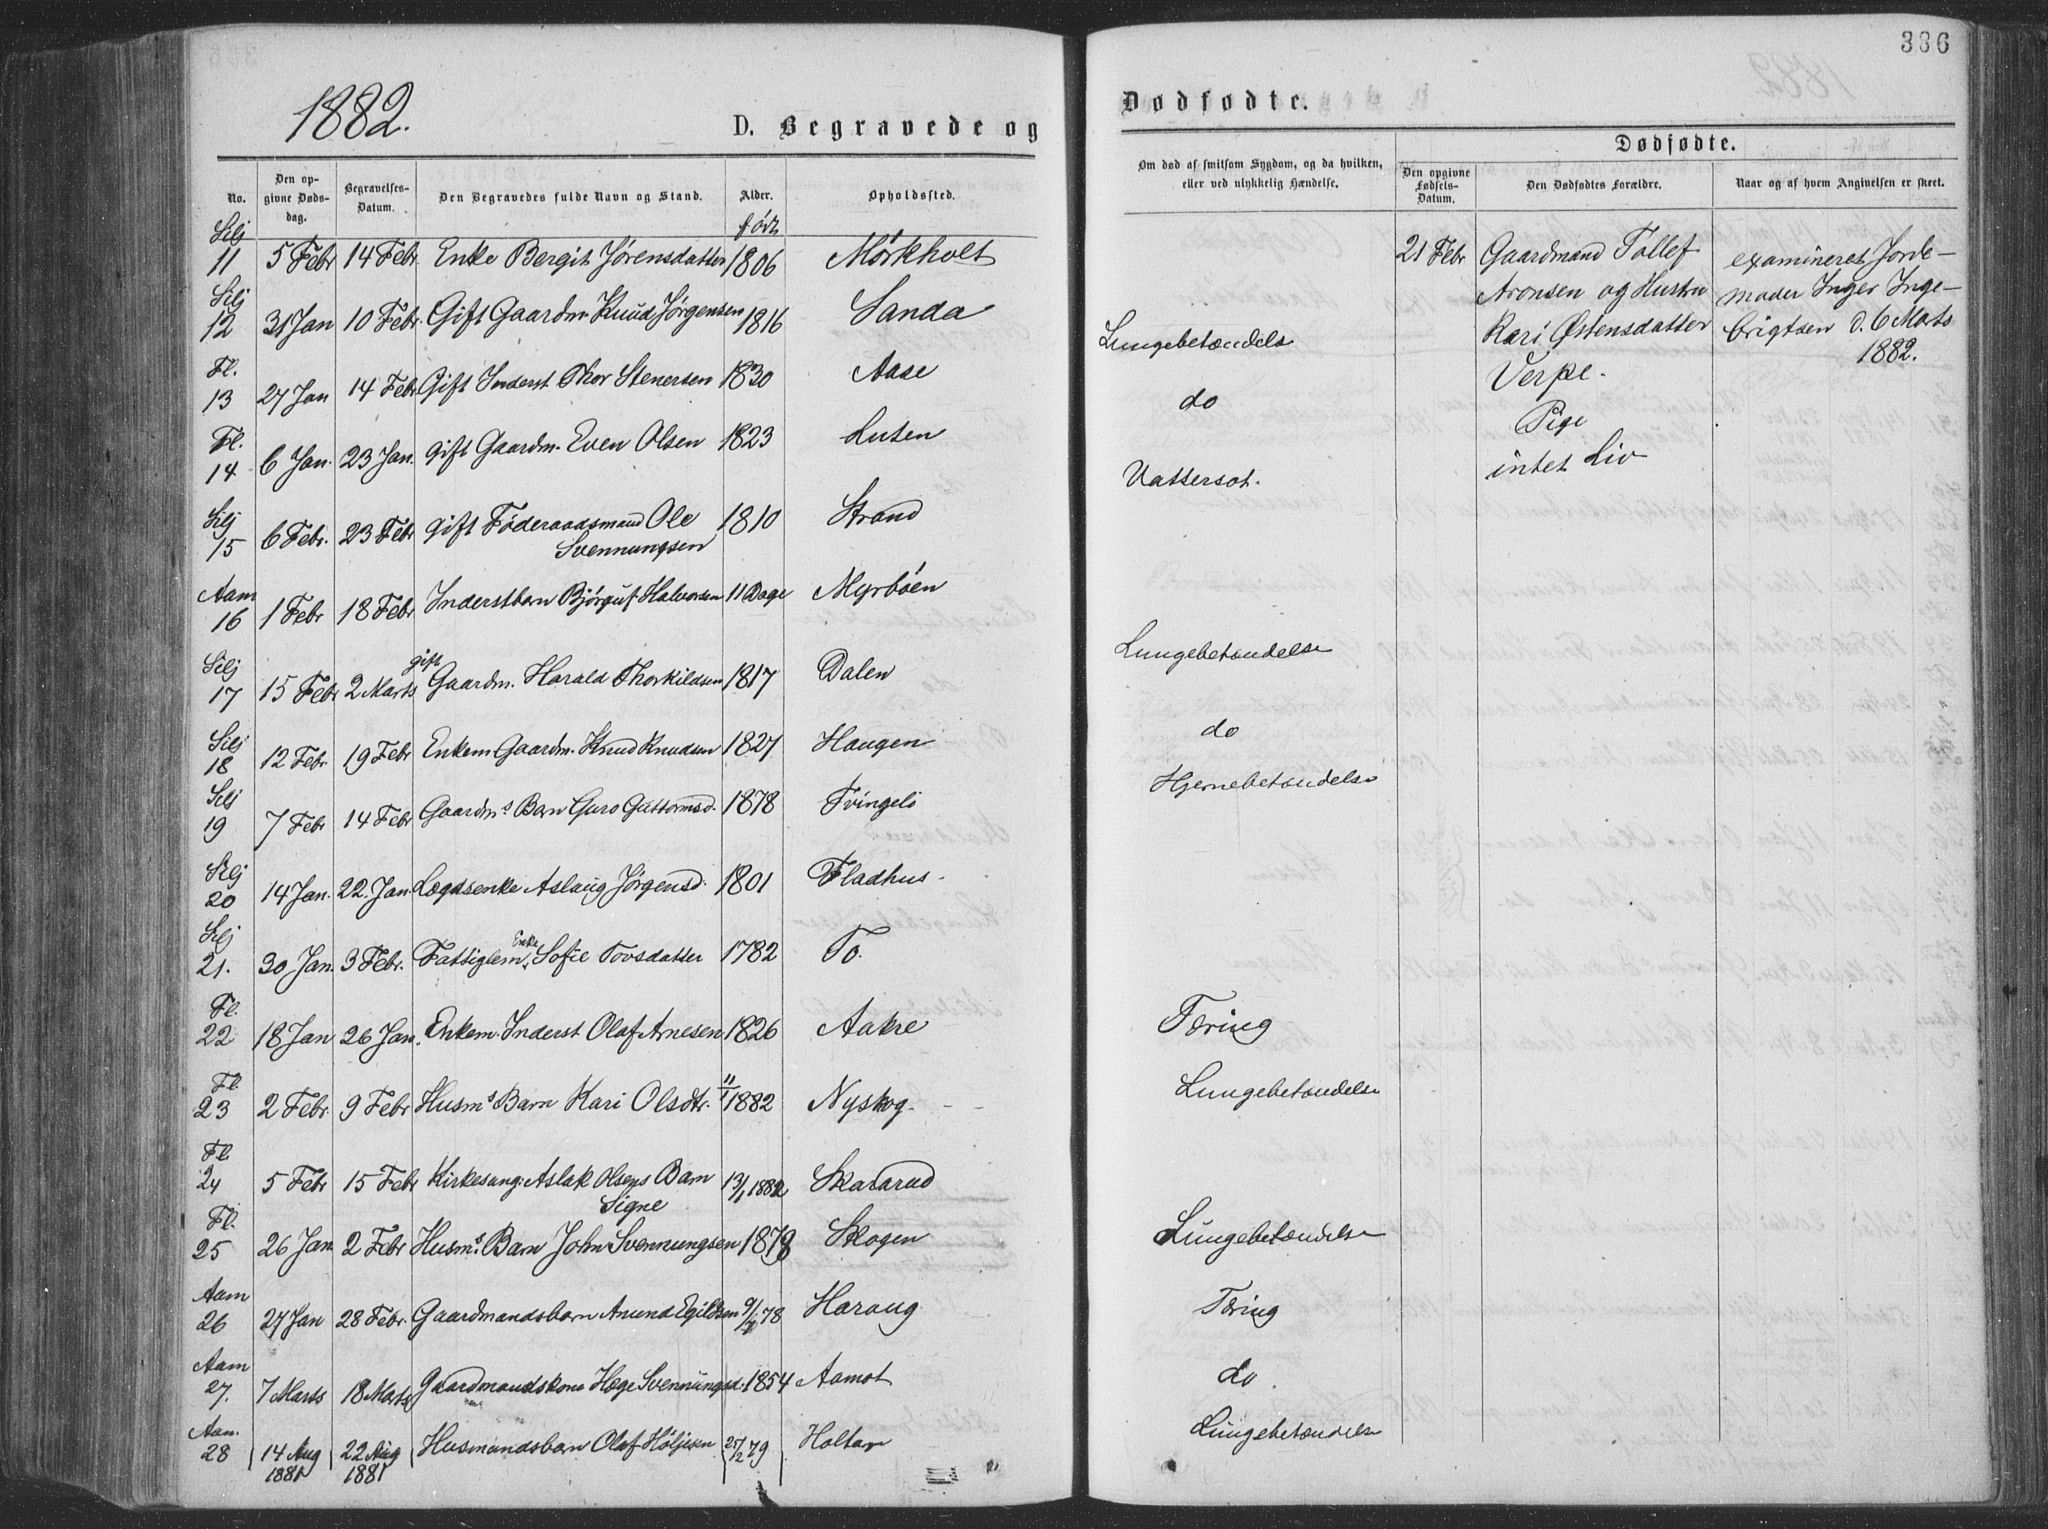 1882.
D. Begravede og
No.
Den opgivne Dødsdag.
Begravelses-Datum.
Den Begravedes fulde Navn og Stand.
Alder.
født
Opholdssted.
Silj 11 5 Febr 14 Febr. Enke Bergit Jørensdatter 1806 Mørkholt
Silj 12 31 Jan 10 Febr. Gift Gaardm. Knud Jørgensen 1816 Sanda
Fl. 13 27 Jan 14 Febr Gift Inderst Thor Stenersen 1830 Aase
Fl. 14 6 Jan. 23 Jan. gift Gaardm. Even Olsen 1823 Lusen
Silj 15 6 Febr. 23 Febr gift Føderaadsmand Ole 1810 Strand
Svennungsen
Aam 16 1 Febr 18 Febr Inderstbarn Bjørguf Halvorsen 11 Dage Myrbøen
Silj 17 15 Febr 2 Marts gift Gaardm. Harald Thorkildsen 1817 Dalen
Silj 18 12 Febr. 19 Febr Enkem. Gaardm. Knud Knudsen 1827 Haugen
Silj 19 7 Febr 14 Febr Gaardms Barn Guro Guttormsd. 1878 Tvingeli
Silj 20 14 Jan. 22. Jan. Lægdsenke Aslaug Jørgensd. 1801 Fladhus.
Silj 21. 30 Jan. 3 Febr. Fattiglem, Enke Sofie Tovsdatter 1782 To.
Fl. 22 18 Jan 26 Jan. Enkem. Inderst Olaf Arnesen 1826 Aakre
Fl. 23 2 Febr. 9 Febr Husms Barn Kari Olsdtr. 11/1 1882 Nyskog.
Fl. 24 5 Febr 15 Febr Kirkesang. Aslak Olsens Barn 13/1 1882 Skararud
Signe
Fl. 25 26 Jan 2 Febr Husms. Barn John Svennungsen 1878 Skogen
Aam 26 27 Jan 28 Febr. Gaardmandsbarn Anund Egildsen 78 Haraug
Aam 27. 7 Marts 18 Marts Gaardmandskone Hæge Svennungsd. 1854 Aamot
Aam. 28 14 Aug 1881 22 Aug 1881 Husmandsbarn Olaf Høljesen 27/2 79 Holtar
336
Dødfødte.
Om død af smitsom Sygdom, og da hvilken,
eller ved ulykkelig Hændelse.
Dødfødte.
Den opgivne Fødsels-Datum.
Den Dødfødtes Forældre.
Naar og af hvem Angivelsen er skeet.
21 Febr
Gaardmand Tollef
Aronsen og Hustru
Kari Østensdatter
Verpe.
Pige
intet Liv
examineret Jorde-
moder Inger Inge-
brigtsen d. 6 Marts
1882.
Lungebetændels
do
Vattersot.
Lungebetændelse
do
Hjernebetændelse
Tæring
Lungebetændelse
Lungebetændelse
Tæring
do.
Lungebetændelse